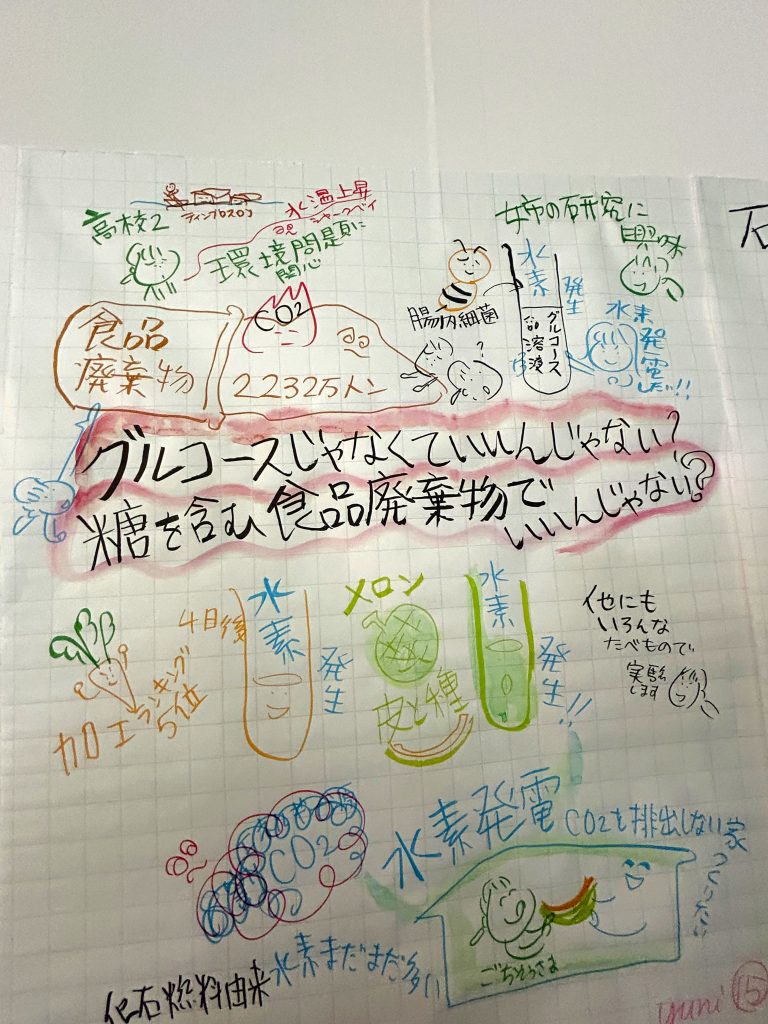 高校2
水温上昇
シャークベイ
環境問題に
関心
姉の研究に
興味
食品
廃棄物
CO2
2232万トン
腸内細菌
?
水素
発生
グルコース
溶液
水素
発電
したい!!
グルコースじゃなくていいんじゃない?
糖を含む食品廃棄物で
いいんじゃない?
4日後
水素
発生
加工ランキング
5位
メロン
皮と種
水素
発生!!
他にも
いろんな
たべもので
実験
します
CO2
化石燃料由来水素まだまだ多い
水素発電
CO2を排出しない家
つくりたい
ごちそうさま
yuni
15
石